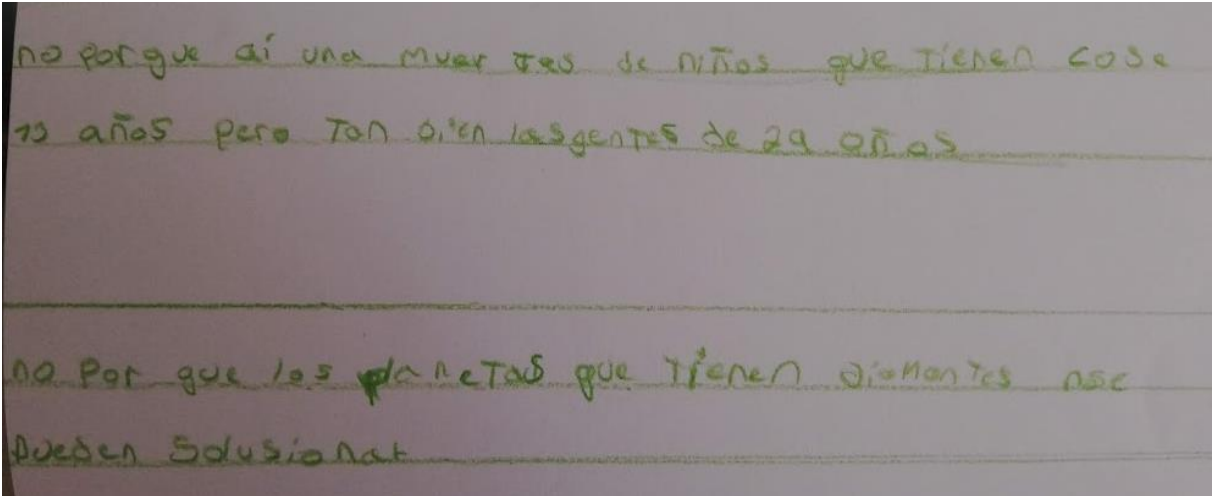 no porque aí una muer tes de niños que tienen cose
años pero Tan bien las gentes de 29 años
no Por que los planeTas que Tienen diamantes nse
pueden Solusionar